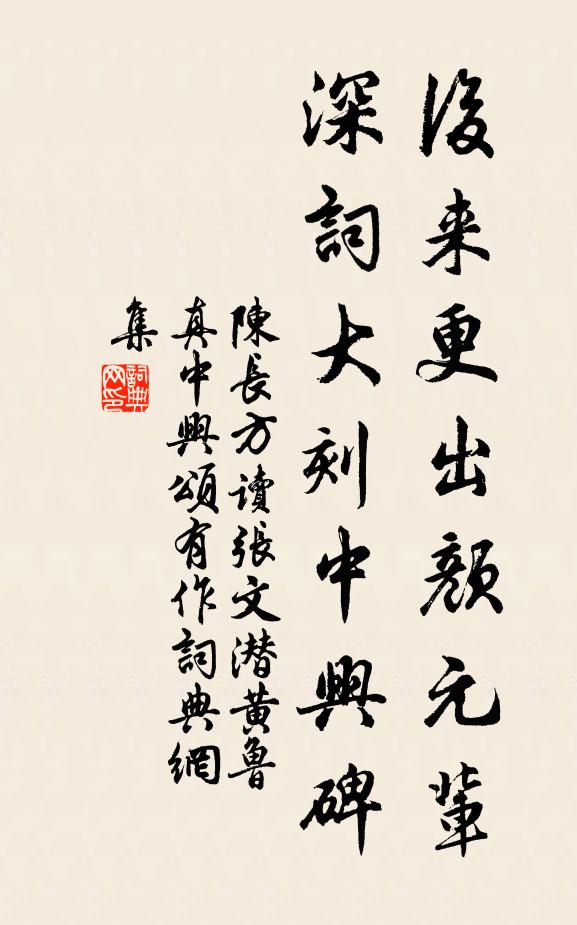 後来更出顔元輩
深詞大刻中興碑
陳長方讀張文潜黄魯
真中興頌有作詞典網
集
詞典网印